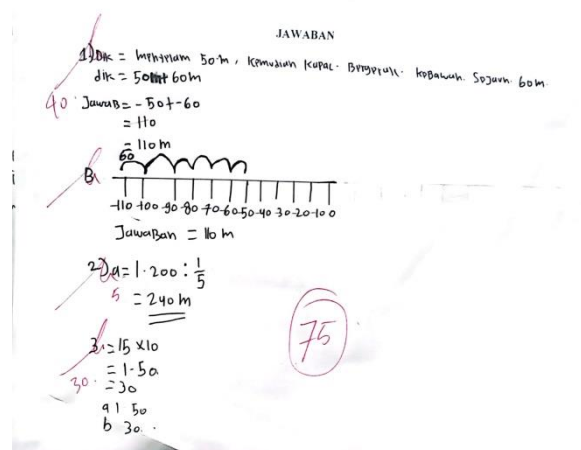 JAWABAN
1) Dik = 50 m, Kemudian Kapal. Bergerak. Kebawah. Sejauh. 60m.
dik = 50 m + 60m
40. Jawab = - 50 + - 60
= 110
= 110 m
60
B.
-110 -100 -90 -80 -70 -60 -50 -40 -30 -20 -10 0
Jawaban = 110 m
2) a = 1.200 : 1/5
5 = 240 m
75
3. = 15 x 10
= 1.50
30. = 30
a 1 50
b 30.